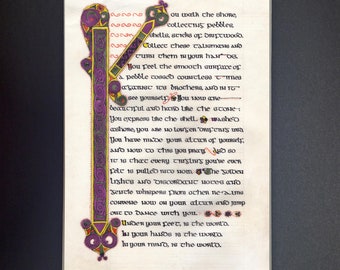 You walk the shore,
collecting pebbles,
shells, sticks of driftwood.
Collect these talismen and
turn them in your hands.
You feel the smooth surface of
a pebble tossed countless times
against its brothers, and in it
see yourself. You now are
beautiful and hard like the stone
you express like the shell washed
ashore, you are no longer drifting wood
you have made your altar of yourself,
and now to this you pray. And so
it is that every tingling you've ever
felt is pulled into now. The golden
lights and discordant notes and
gentle whispers from other
converge now on your altar and jump
out to dance with you.
Under your feet, is the world.
In your hands is the world.
In your mind, is the world.